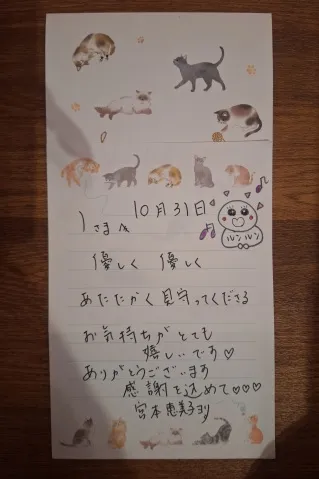 10月31日
Iさまへ
ルンルン
優しく 優しく
あたたかく見守ってくださる
お気持ちがとても
嬉しいです♡
ありがとうございます
感謝を込めて♡♡♡
宮本恵美子ヨリ